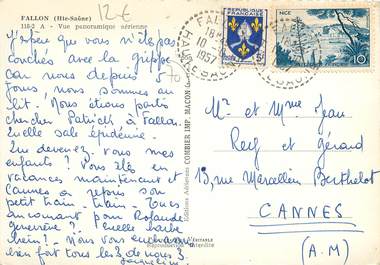 FALLON (Hte-Saône)
118-2 A - Vue panoramique aérienne
12€
J'espère que vous n'êtes pas
couchés avec la grippe
car nous depuis 5
jours, nous sommes au
lit. Nous étions partis
chercher Patrick à Fallon.
Quelle sale épidémie.
Que devenez-vous mes
enfants? Vous êtes en
vacances maintenant et
Cannes a repris son
petit train-train. Quoi
pour Rolande
Quelle barbe
hein! Nous vous embrassons
bien fort tous les 3 de nous 3
Jacqueline
Editions Aériennes COMBIER IMP. MACON
Reproduction interdite
FALLON
18H
10-
1957
HAUTE SAONE
REPUBLIQUE FRANÇAISE
5F
NICE
10F
Mr et Mme Jean
et Gérard
13, rue Marcellin Berthelot
CANNES
(A.M)